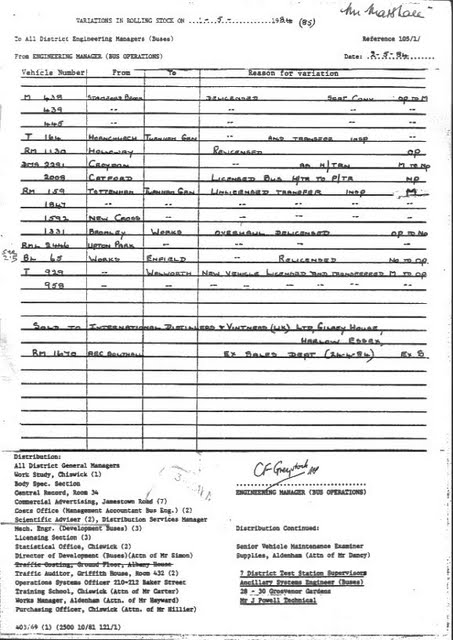 Mr Marshall
VARIATIONS IN ROLLING STOCK ON 1-5- 1984 (85)
To All District Engineering Managers (Buses) Reference 105/1/
From ENGINEERING MANAGER (BUS OPERATIONS) Date: 2-5-84
Vehicle Number From To Reason for variation
M 438 STAMFORD BROOK DELICENSED SEAT CONV OP TO M
439 -- -- --
445 -- -- --
T 164 HORNCHURCH TURNHAM GRN -- AND TRANSFER INSP --
RM 1130 HOLLOWAY RELICENSED OP
DMS 2291 CROYDON -- AN H/TRN M TO NO
2008 CATFORD LICENSED BUS H/TR TO P/TR NO
RM 159 TOTTENHAM TURNHAM GRN UNLICENSED TRANSFER INSP M
1847 -- -- -- -- --
1592 NEW CROSS -- -- -- --
1331 BROMLEY WORKS OVERHAUL DELICENSED OP TO NO
RML 2446 UPTON PARK -- -- -- --
BL 65 WORKS ENFIELD -- RELICENSED NO TO OP
T 929 -- WALWORTH NEW VEHICLE LICENSED AND TRANSFERRED M TO OP
958 -- -- -- -- -- --
SOLD TO INTERNATIONAL DISTILLERS & VINTNERS (UK) LTD, GILBEY HOUSE,
HARLOW ESSEX,
RM 1670 AEC SOUTHALL EX SALES DEPT (24-4-84) EX S
Distribution:
All District General Managers
Work Study, Chiswick (1)
Body Spec. Section
Central Record, Room 34
Commercial Advertising, Jamestown Road (7)
Costs Office (Management Accountant Bus Eng.) (2)
Scientific Adviser (2), Distribution Services Manager
Mech. Engr. (Development Buses) (3)
Licensing Section (3)
Statistical Office, Chiswick (2)
Director of Development (Buses)(Attn of Mr Simon)
Traffic Costing, Ground Floor, Albany House
Traffic Auditor, Griffith House, Room 432 (2)
Operations Systems Officer 210-212 Baker Street
Training School, Chiswick (Attn of Mr Carter)
Works Manager, Aldenham (Attn. of Mr Hayward)
Purchasing Officer, Chiswick (Attn of Mr Hillier)
403/49 (1) (2500 10/81 121/1)
ENGINEERING MANAGER (BUS OPERATIONS)
Distribution Continued:
Senior Vehicle Maintenance Examiner
Supplies, Aldenham (Attn of Mr Dancy)
7 District Test Station Supervisors
Ancillary Systems Engineer (Buses)
28 - 30 Grosvenor Gardens
Mr J Powell Technical